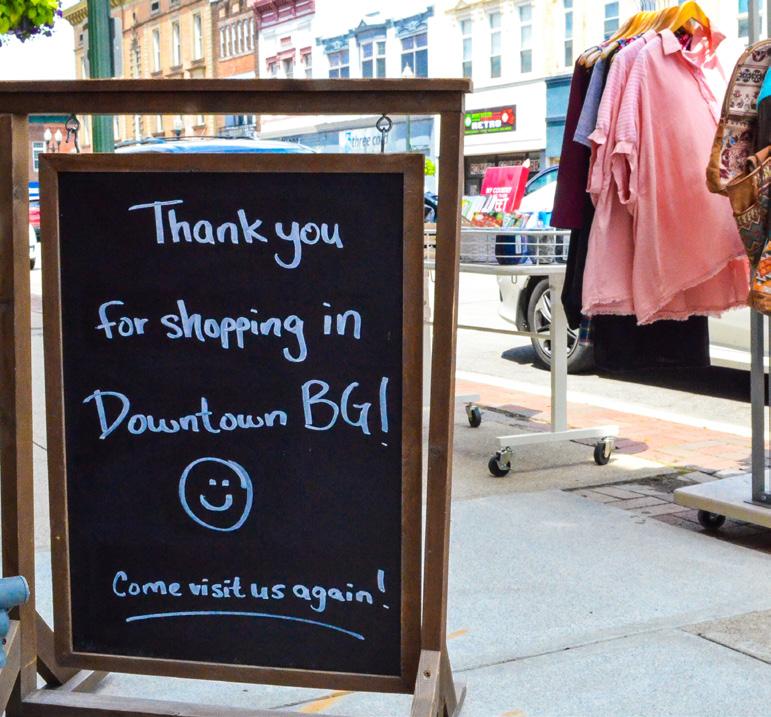 Thank you
for shopping in
Downtown BG!
Come visit us again!
three co
RETRO
MY COUNTRY